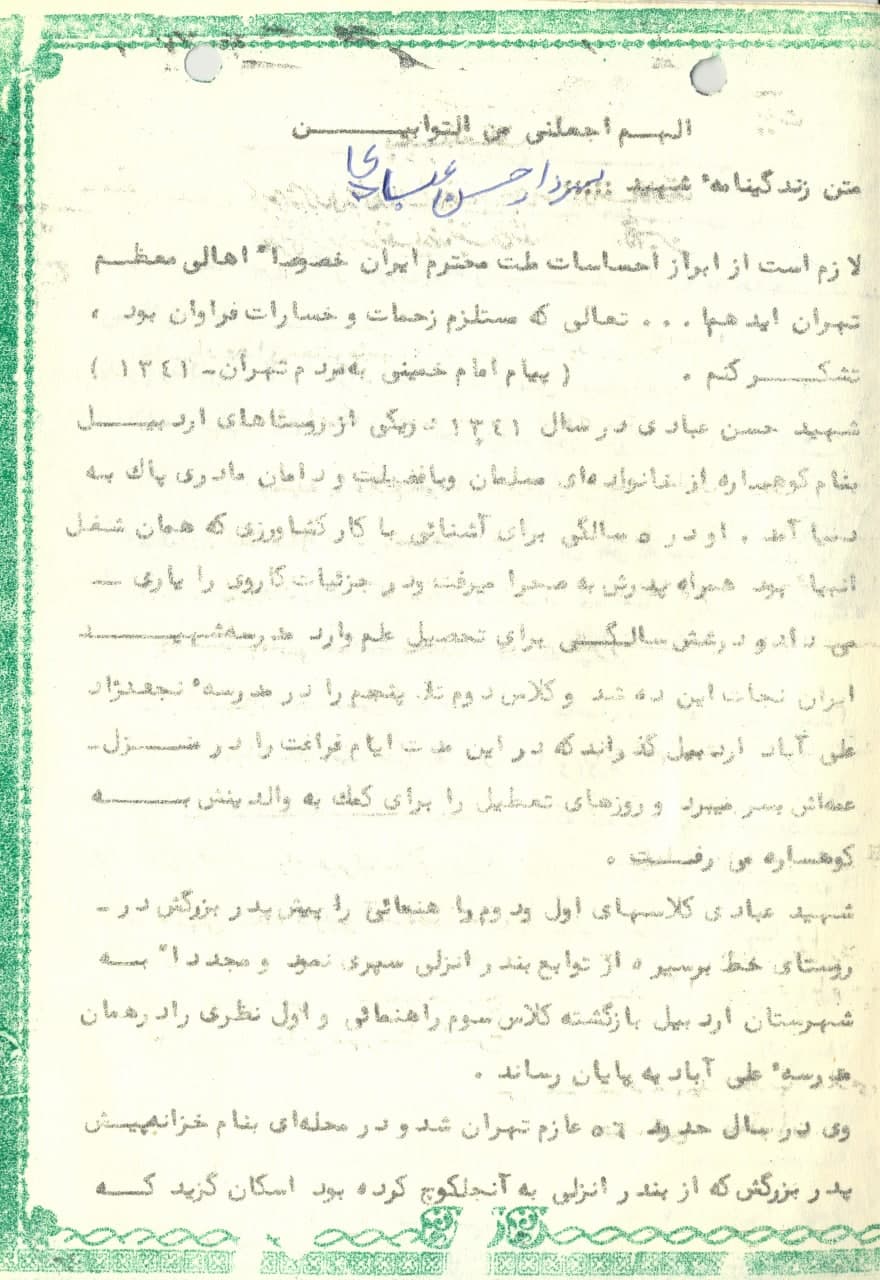 الهم اجعلنی من التوابین
متن زندگینامهٔ شهید سردار حسن عبادی
لازم است از ابراز احساسات ملت محترم ایران خصوصاً اهالی معظم
تهران ایدهما... تعالی که مستلزم زحمات و خسارات فراوان بود ،
تشکر کنم . ( پیام امام خمینی به مردم تهران - ۱۳٤۱ )
شهید حسن عبادی در سال ۱۳٤۱ در یکی از روستاهای اردبیل
بنام کوهساره از خانوادهای مسلمان وبافضیلت و دامان مادری پاك به
دنیا آمد . او در ٥ سالگی برای آشنائی با کار کشاورزی که همان شغل
آنها بود همراه پدرش به صحرا میرفت ودر جزئیات کار وی را یاری -
می داد و در شش سالگی برای تحصیل علم وارد مدرسه شهید
ایران نجات این ده شد و کلاس دوم تا پنجم را در مدرسهٔ نجفنژاد
علی آباد اردبیل گذراند که در این مدت ایام فراغت را در منزل -
عمهاش بسر میبرد و روزهای تعطیل را برای کمك به والدینش به
کوهساره می رفت .
شهید عبادی کلاسهای اول ودوم راهنمائی را پیش پدر بزرگش در -
روستای خط برسیره از توابع بندر انزلی سپری نمود و مجدداً به
شهرستان اردبیل بازگشته کلاس سوم راهنمائی و اول نظری را در همان
مدرسهٔ علی آباد به پایان رساند .
وی در سال حدود ٥٦ عازم تهران شد و در محلهای بنام خزانه پیش
پدر بزرگش که از بندر انزلی به آنجا کوچ کرده بود اسکان گزید که